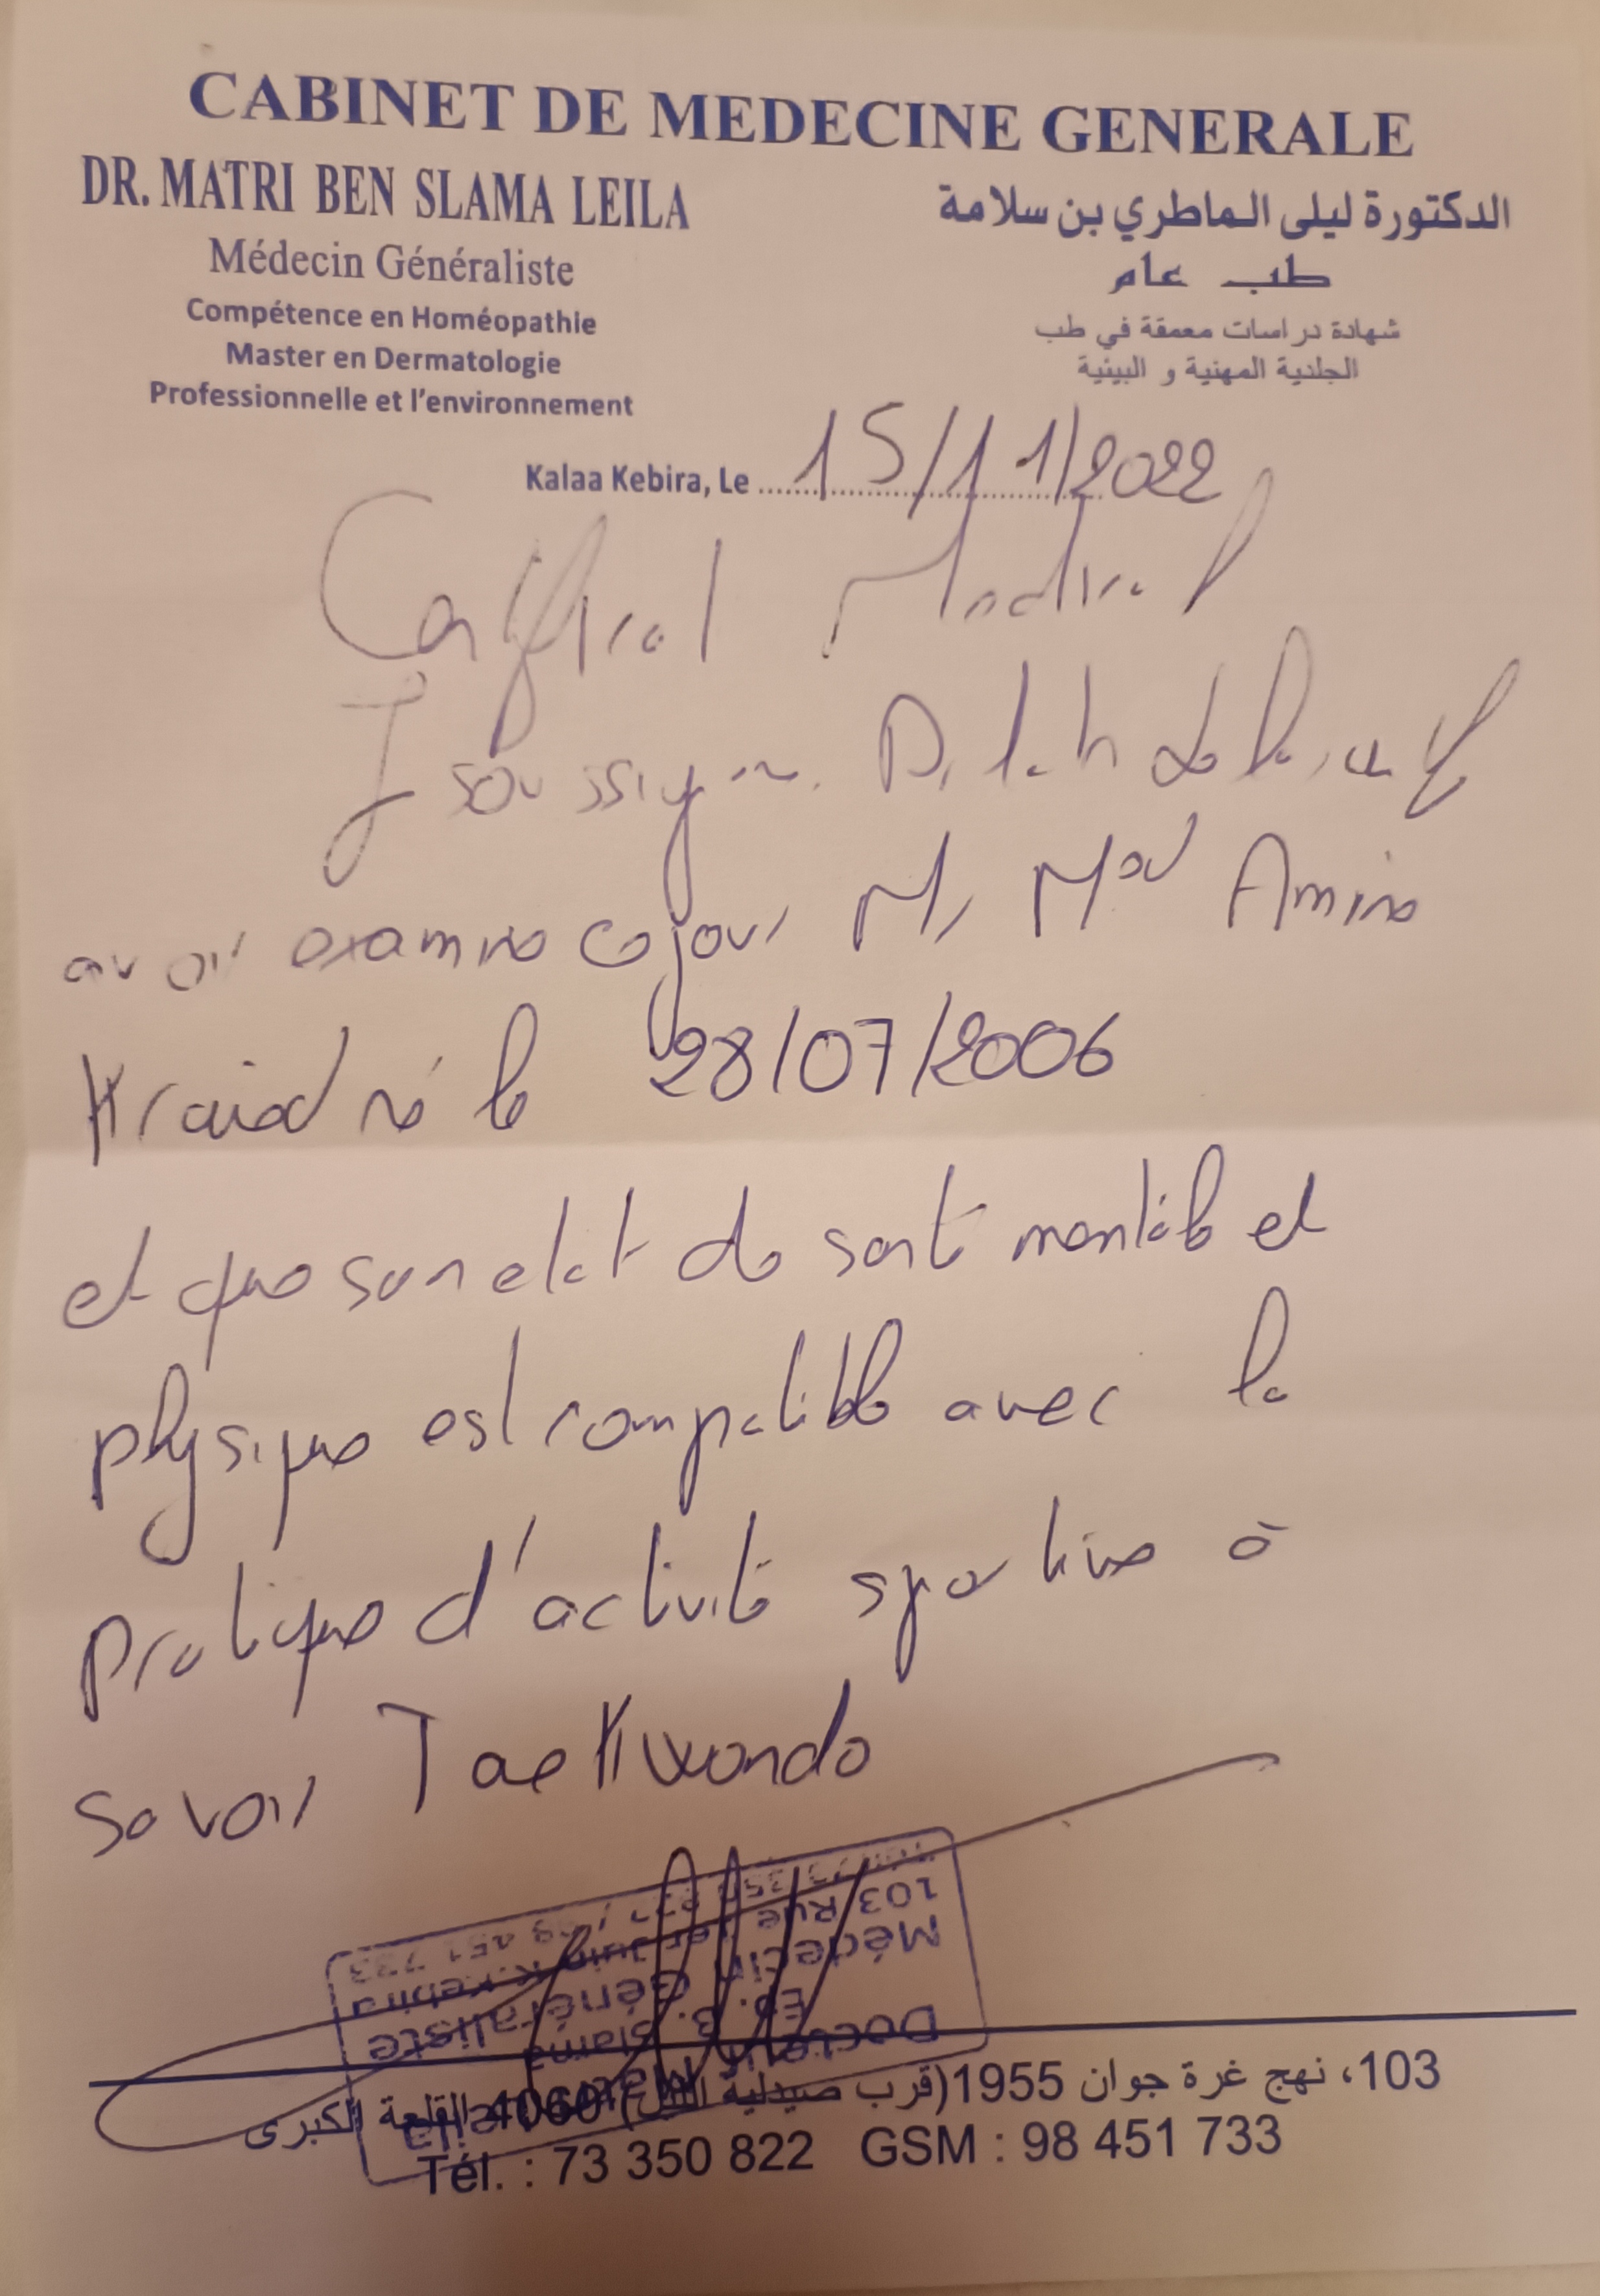 CABINET DE MEDECINE GENERALE
DR. MATRI BEN SLAMA LEILA
Médecin Généraliste
Compétence en Homéopathie
Master en Dermatologie
Professionnelle et l'environnement
الدكتورة ليلى الماطري بن سلامة
طب عام
شهادة دراسات معمقة في طب
الجلدية المهنية و البيئية
Kalaa Kebira, Le 15/11/2022
Certificat Médical
Je soussigné. Dr
avoir examiné ce jour Mr Med Amine
Kraied né le 28/07/2006
et que son etat de santé mentale et
physique est compatible avec la
pratique d'activité sportive à
savoir Taekwondo
Docteur
Ep. B. Slama
Médecin Généraliste
103 Rue 1er Juin K. Kebira
103، نهج غرة جوان 1955(قرب صيدلية الليل) 4060 القلعة الكبرى
Tél. : 73 350 822 GSM : 98 451 733